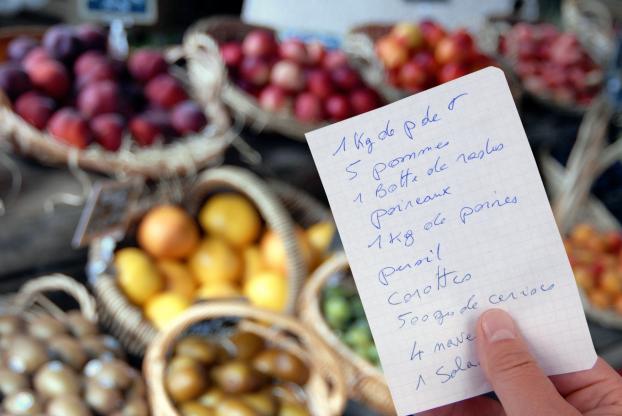 1 Kg de p de T
5 pommes
1 Botte de radis
poireaux
1 Kg de poires
persil
carottes
500g de cerises
4 nave
1 Sala